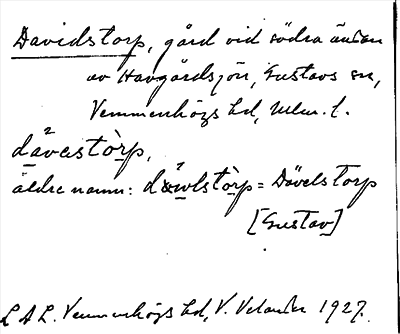 Davidstorp, gård vid södra ändan
av Havgårdsjön, Gustavs sn,
Vemmenhögs hd, Mlm. l.
davestòrp,
äldre namn: döwlstòrp = Dävelstorp
[Gustav]
L A L. Vemmenhögs hd, V. Velander 1927.